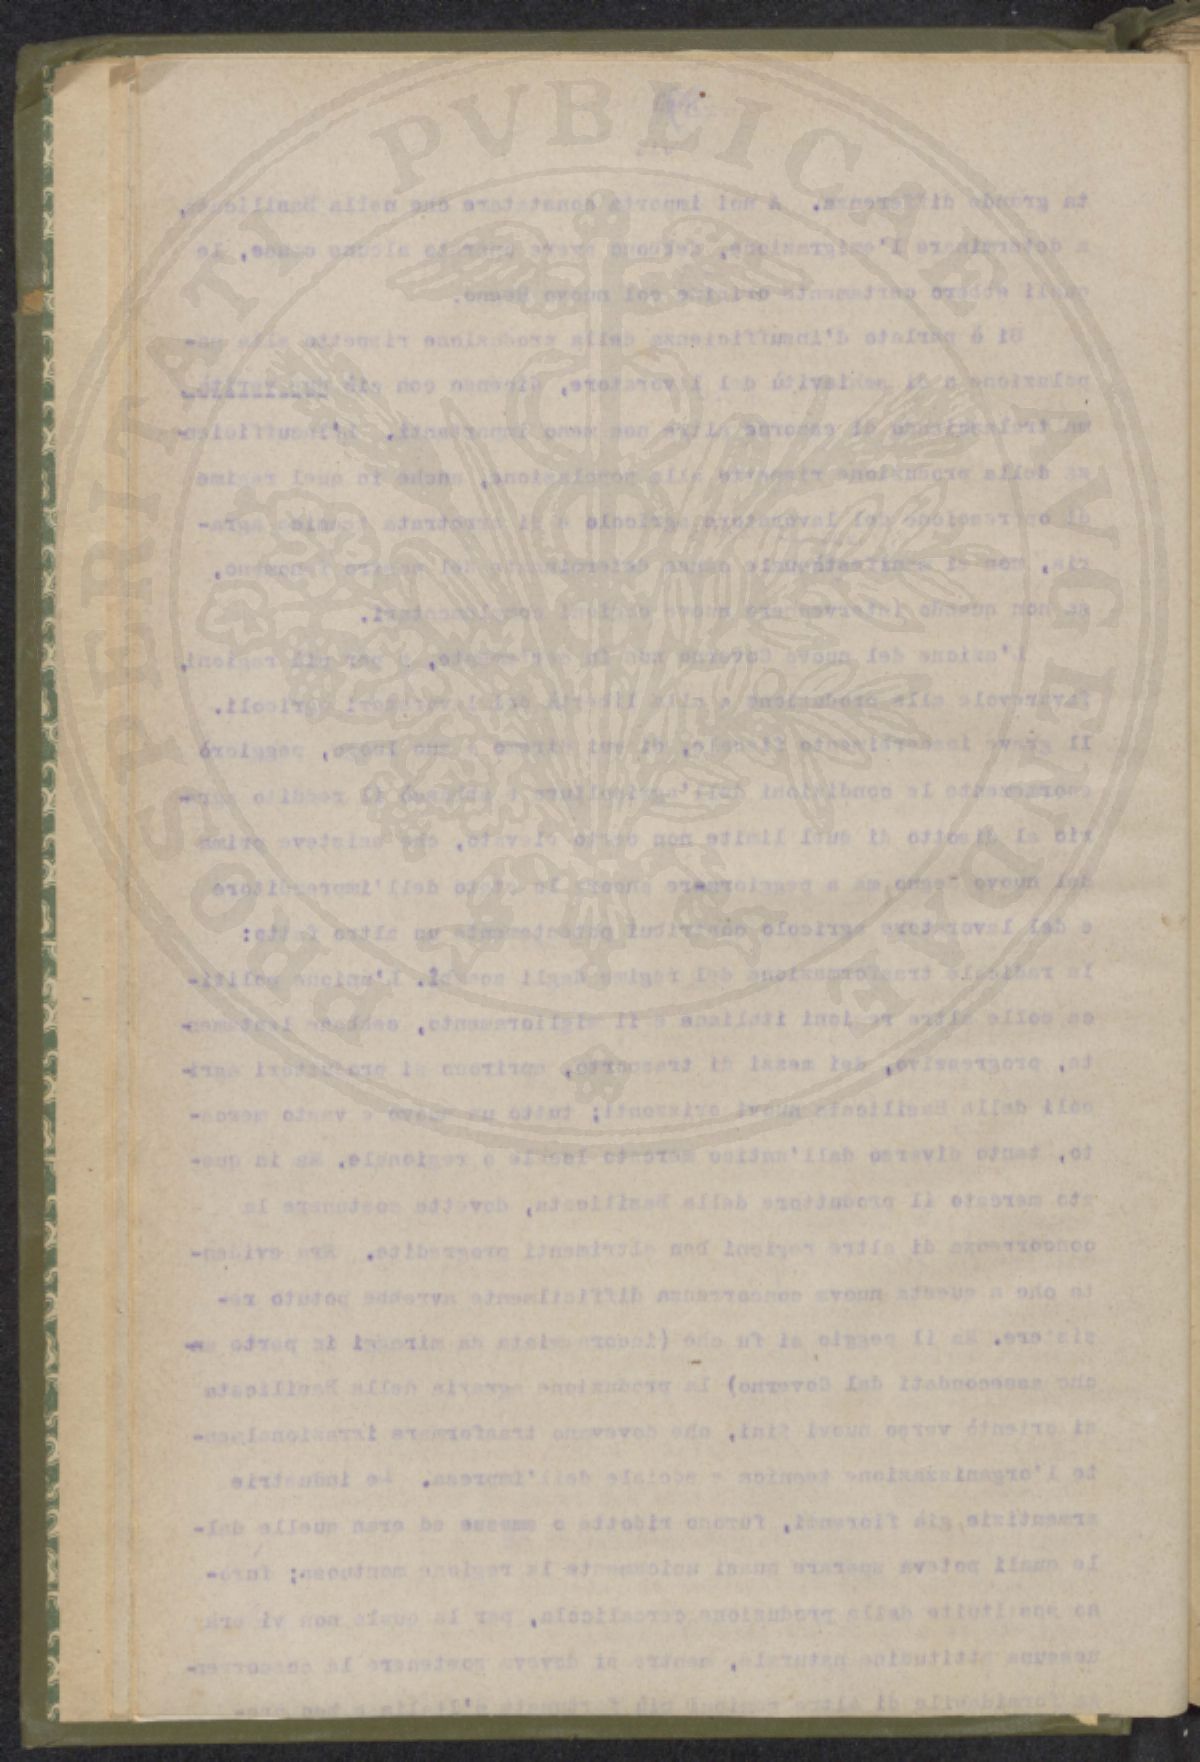 PROSPERITATI PVBLICAE AVGENDAE
ta grande differenza. A noi importa constatare che nella Basilicata,
a determinare l'emigrazione, debbono avere operato alcune cause, le
quali ebbero certamente origine col nuovo Regno.
Si è parlato d'insufficienza della produzione rispetto alla po-
polazione e di schiavitù del lavoratore, dicendo con già
ma tralasciando di esporne altre non meno importanti. L'insufficien-
za della produzione rispetto alla popolazione, anche in quel regime
di oppressione del lavoratore agricolo e di arretrata tecnica agra-
ria, non si manifestò quale causa determinante del nostro fenomeno,
se non quando intervennero nuove cagioni complementari.
L'azione del nuovo Governo non fu certamente, e per più ragioni,
favorevole alla produzione e alla libertà dei lavoratori agricoli.
Il grave inasprimento fiscale, di cui diremo a suo luogo, peggiorò
enormemente le condizioni dell'agricoltura e abbassò il reddito
rio al disotto di quel limite non certo elevato, che esisteva prima
del nuovo Regno ma a peggiorare ancora lo stato dell'imprenditore
e del lavoratore agricolo contribuì potentemente un altro fatto:
la radicale trasformazione del regime degli scambi. L'unione politi-
ca colle altre regioni italiane e il miglioramento, sebbene lentamen-
te, progressivo, dei mezzi di trasporto, aprirono ai produttori agri-
coli della Basilicata nuovi orizzonti; tutto un nuovo e vasto merca-
to, tanto diverso dall'antico mercato locale o regionale. Ma in que-
sto mercato il produttore della Basilicata, dovette sostenere la
concorrenza di altre regioni ben altrimenti progredite. Era eviden-
te che a questa nuova concorrenza difficilmente avrebbe potuto re-
sistere. Ma il peggio si fu che (incoraggiata da miraggi in parte an-
che assecondati dal Governo) la produzione agraria della Basilicata
si orientò verso nuovi fini, che dovevano trasformare irrazionalmen-
te l'organizzazione tecnica e sociale dell'impresa. Le industrie
armentizie già fiorenti, furono ridotte o smesse ed eran quelle dal-
le quali poteva sperare quasi unicamente la regione montuosa; furo-
no sostituite dalla produzione cerealicola, per la quale non vi era
nessuna attitudine naturale, mentre si doveva sostenere la concorren-
za formidabile di altre regioni più fortunate d'Italia e ben pre-